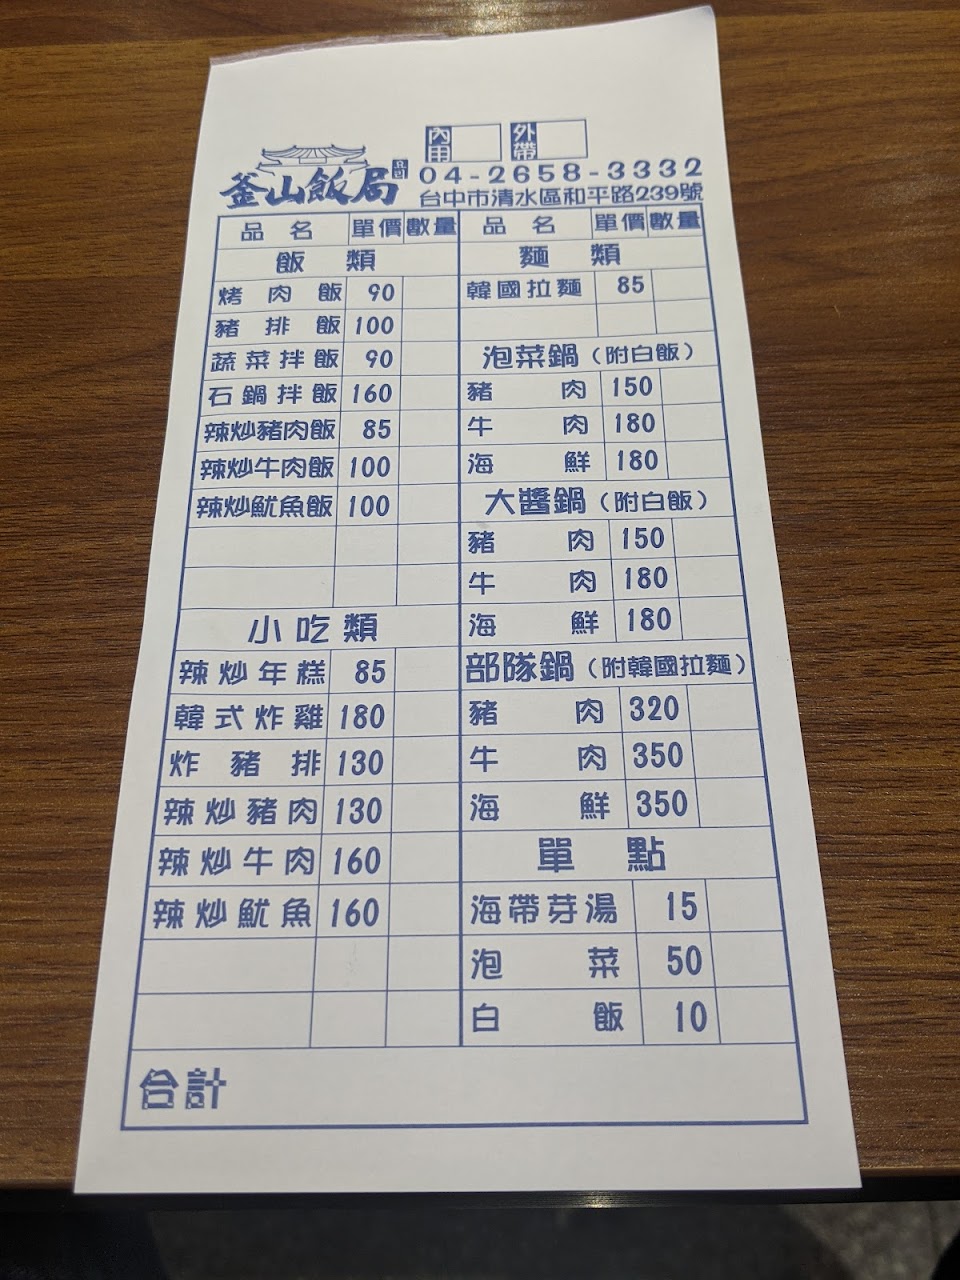 內用 外帶
釜山飯局 04-2658-3332
台中市清水區和平路239號
品名 單價 數量
飯類
烤肉飯 90
豬排飯 100
蔬菜拌飯 90
石鍋拌飯 160
辣炒豬肉飯 85
辣炒牛肉飯 100
辣炒魷魚飯 100
小吃類
辣炒年糕 85
韓式炸雞 180
炸豬排 130
辣炒豬肉 130
辣炒牛肉 160
辣炒魷魚 160
品名 單價 數量
麵類
韓國拉麵 85
泡菜鍋(附白飯)
豬肉 150
牛肉 180
海鮮 180
大醬鍋(附白飯)
豬肉 150
牛肉 180
海鮮 180
部隊鍋(附韓國拉麵)
豬肉 320
牛肉 350
海鮮 350
單點
海帶芽湯 15
泡菜 50
白飯 10
合計